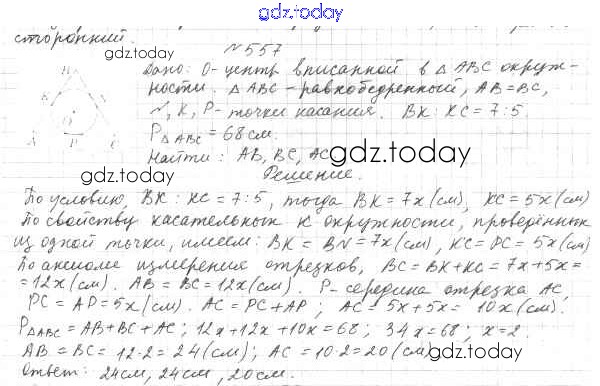 gdz.today
сторонний.
gdz.today
№557
Дано: O-центр вписанной в △ABC окруж-
ности. △ABC-равнобедренный, AB=BC,
N, K, P-точки касания. BK:KC=7:5.
P△ABC=68см.
Найти: AB, BC, AC
gdz.today
Решение.
По условию, BK:KC=7:5, тогда BK=7x(см), KC=5x(см)
По свойству касательных к окружности, проведённых
из одной точки, имеем: BK=BN=7x(см), KC=PC=5x(см)
По аксиоме измерения отрезков, BC=BK+KC=7x+5x=
=12x(см). AB=BC=12x(см). P-середина отрезка AC,
PC=AP=5x(см). AC=PC+AP; AC=5x+5x=10x(см).
P△ABC=AB+BC+AC; 12x+12x+10x=68; 34x=68; x=2.
AB=BC=12·2=24(см); AC=10·2=20(см)
gdz.today
Ответ: 24см, 24см, 20см.
gdz.today